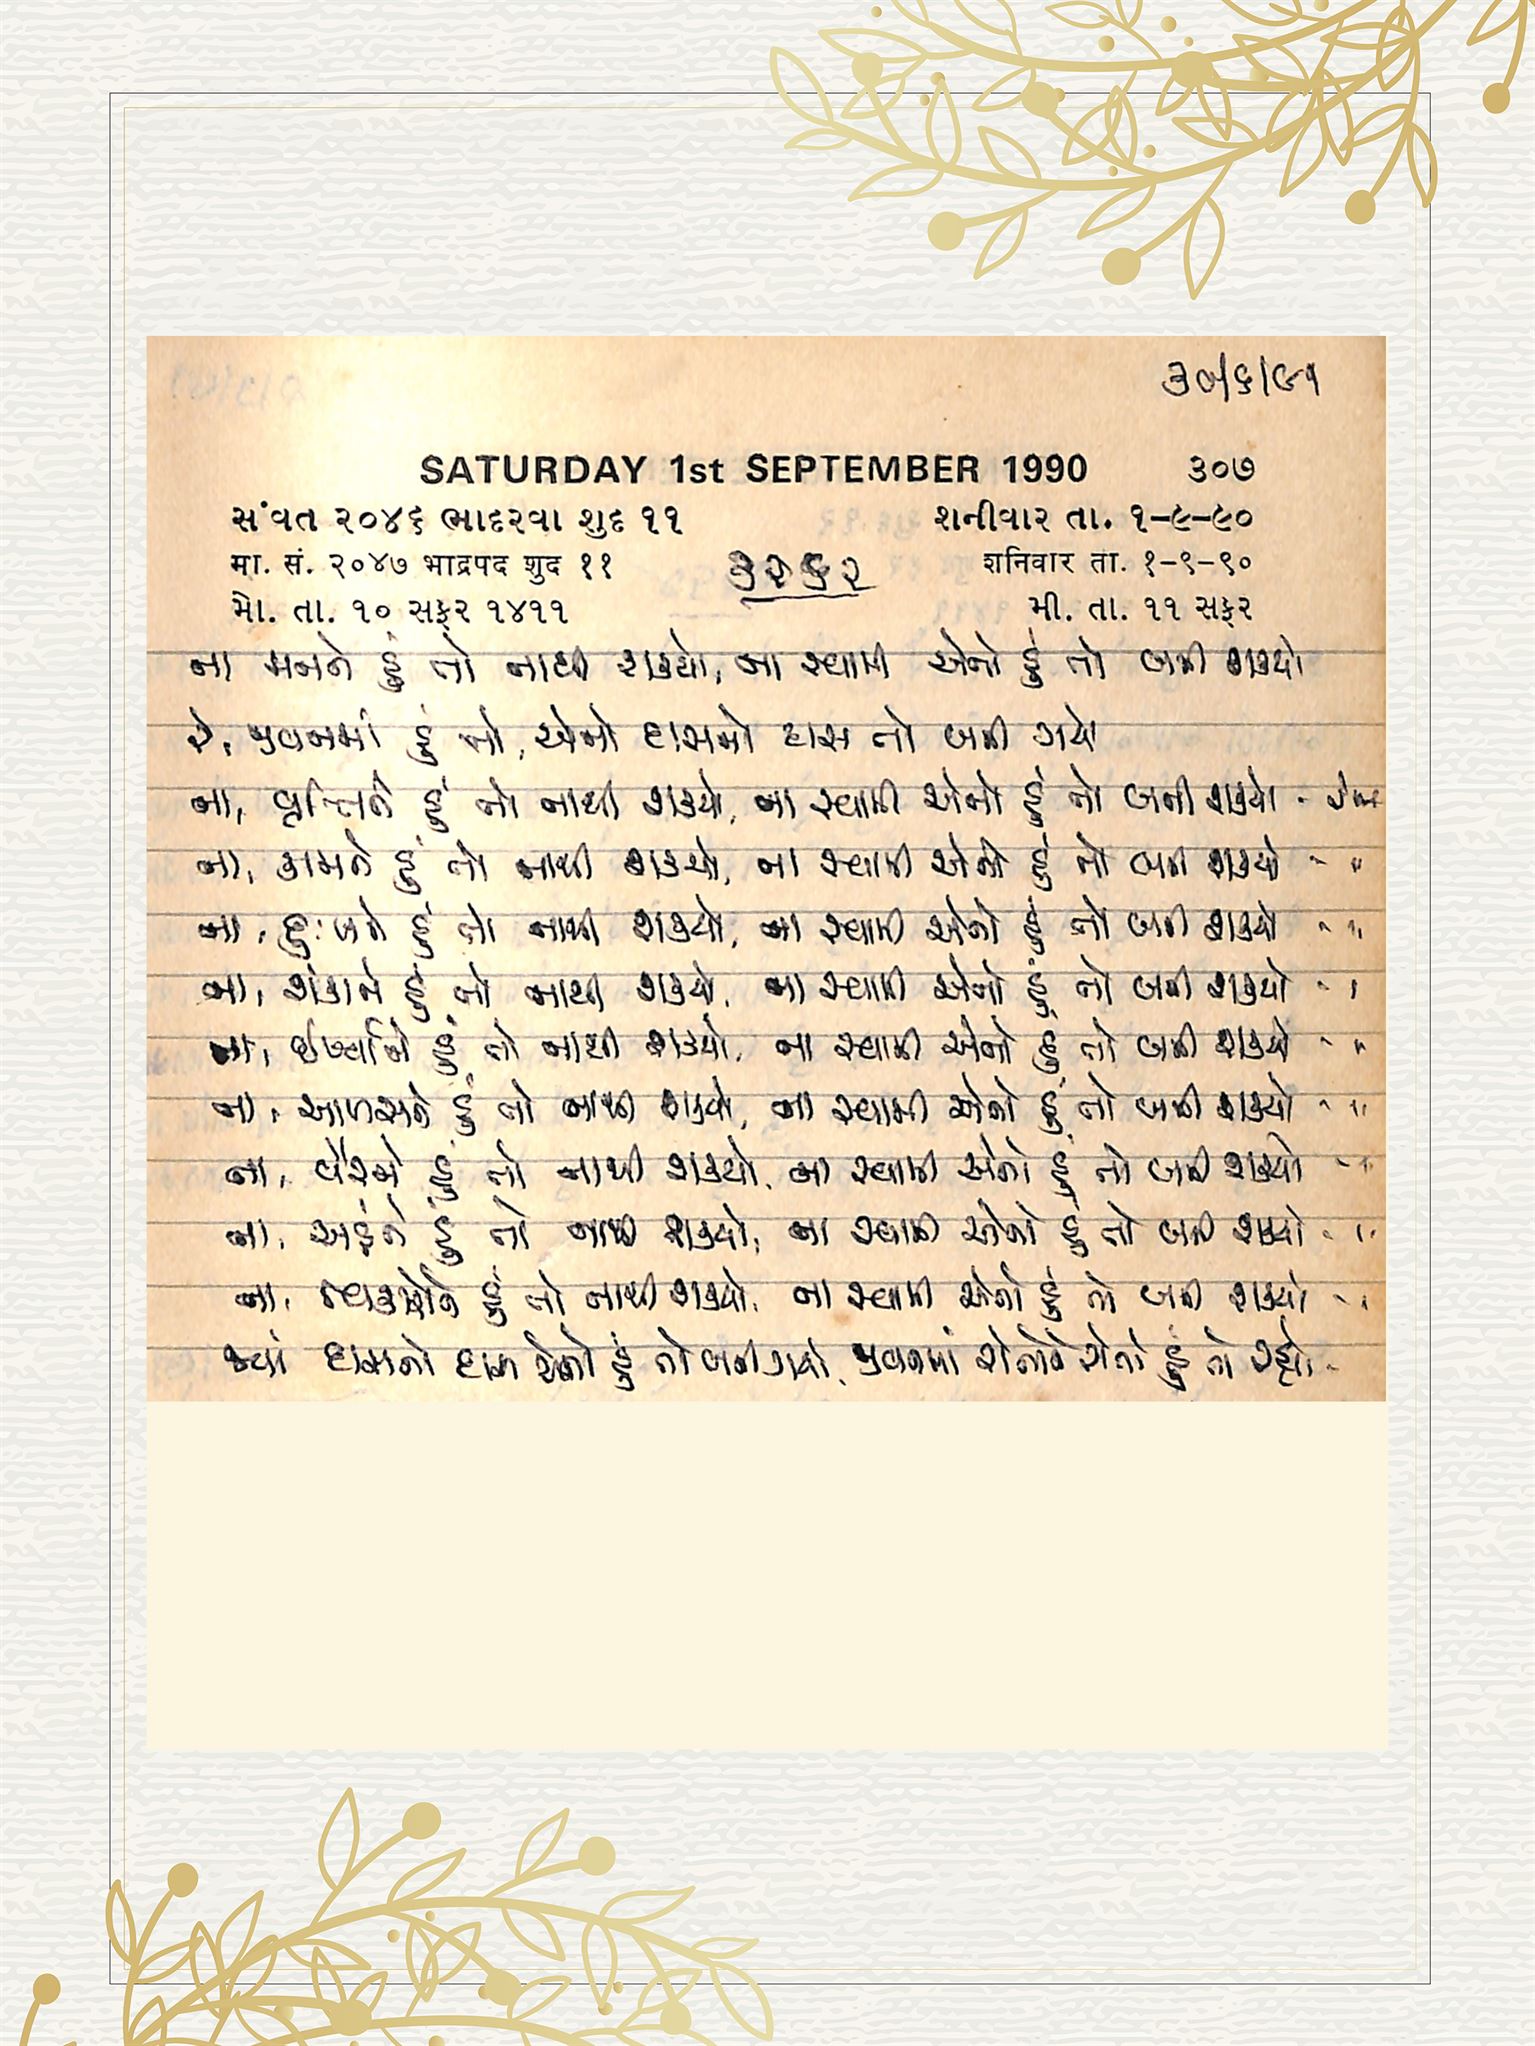 ૩૦/૬/૯૧
SATURDAY 1st SEPTEMBER 1990 ૩૦૭
સંવત ૨૦૪૬ ભાદરવા શુદ ૧૧ શનીવાર તા. ૧-૯-૯૦
मा. सं. २०४७ भाद्रपद शुद ११ ૩૨૬૨ शनिवार ता. १-९-९०
મો. તા. ૧૦ સફર ૧૪૧૧ મી. તા. ૧૧ સફર
ના મનને હું તો નાથી શક્યો, ના સ્વામી એનો હું તો બની શક્યો
રે, જીવનમાં હું તો, એનો દાસનો દાસ તો બની ગયો
ના, વૃત્તિને હું તો નાથી શક્યો, ના સ્વામી એનો હું તો બની શક્યો -
ના, કામને હું તો નાથી શક્યો, ના સ્વામી એનો હું તો બની શક્યો - "
ના, દુઃખને હું તો નાથી શક્યો, ના સ્વામી એનો હું તો બની શક્યો - "
ના, શંકાને હું તો નાથી શક્યો, ના સ્વામી એનો હું તો બની શક્યો - "
ના, ઈર્ષ્યાને હું તો નાથી શક્યો, ના સ્વામી એનો હું તો બની શક્યો - "
ના, આળસને હું તો નાથી શક્યો, ના સ્વામી એનો હું તો બની શક્યો - "
ના, વેરને હું તો નાથી શક્યો, ના સ્વામી એનો હું તો બની શક્યો - "
ના, અહંને હું તો નાથી શક્યો, ના સ્વામી એનો હું તો બની શક્યો - "
ના, હું તો નાથી શક્યો, ના સ્વામી એનો હું તો બની શક્યો - "
જ્યાં દાસનો દાસ એનો હું તો બની ગયો, જીવનમાં રોતોને રોતો હું તો રહ્યો -